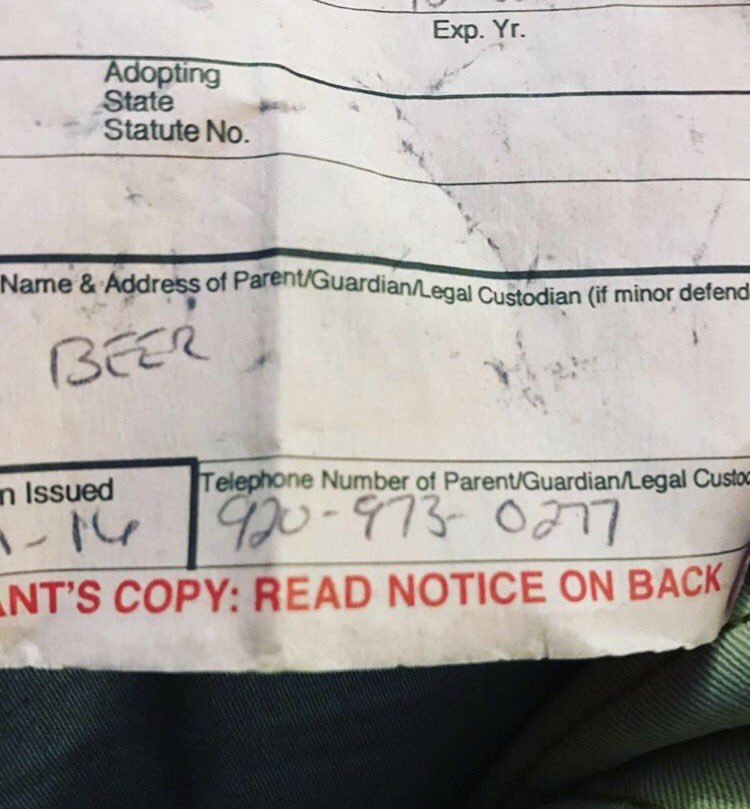 Exp. Yr.
Adopting
State
Statute No.
Name & Address of Parent/Guardian/Legal Custodian (if minor defend
BEER
n Issued
Telephone Number of Parent/Guardian/Legal Custo
-16
920-973-0277
ANT'S COPY: READ NOTICE ON BACK